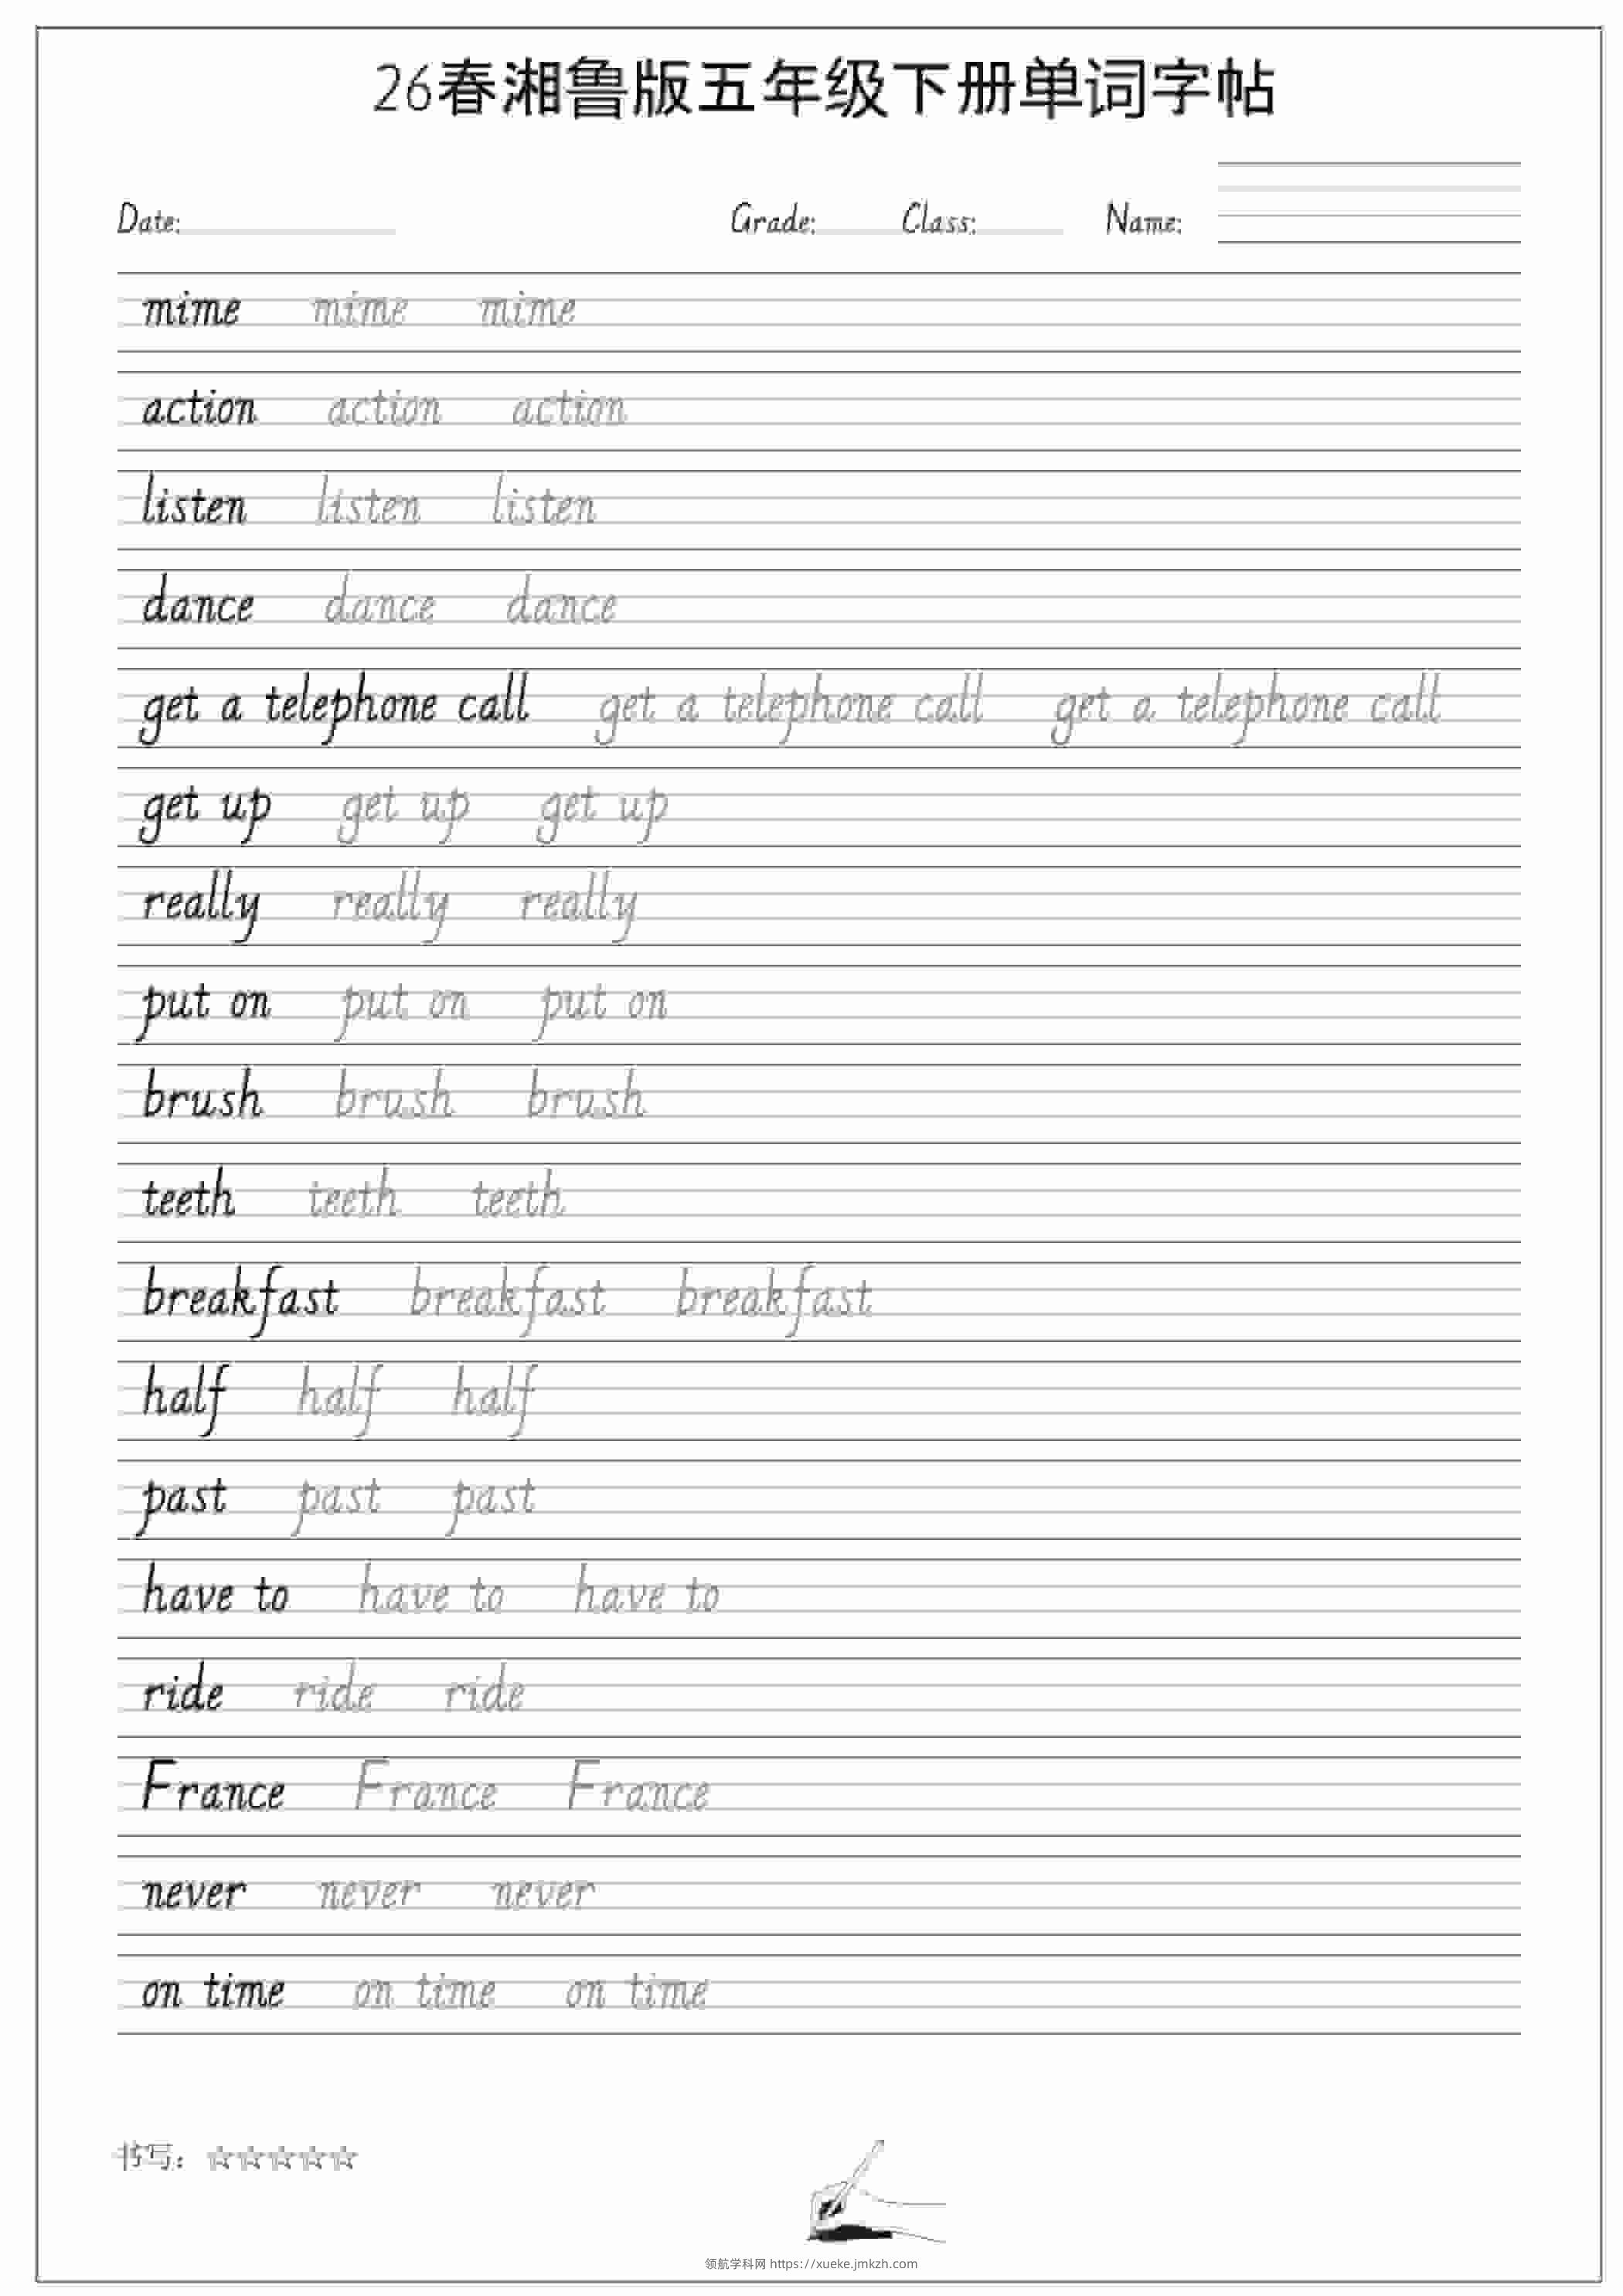 26春湘鲁版五年级下册单词字帖
Date: Grade: Class: Name:
mime mime mime
action action action
listen listen listen
dance dance dance
get a telephone call get a telephone call get a telephone call
get up get up get up
really really really
put on put on put on
brush brush brush
teeth teeth teeth
breakfast breakfast breakfast
half half half
past past past
have to have to have to
ride ride ride
France France France
never never never
on time on time on time
书写：☆☆☆☆☆
领航学科网 https://xueke.jmkzh.com